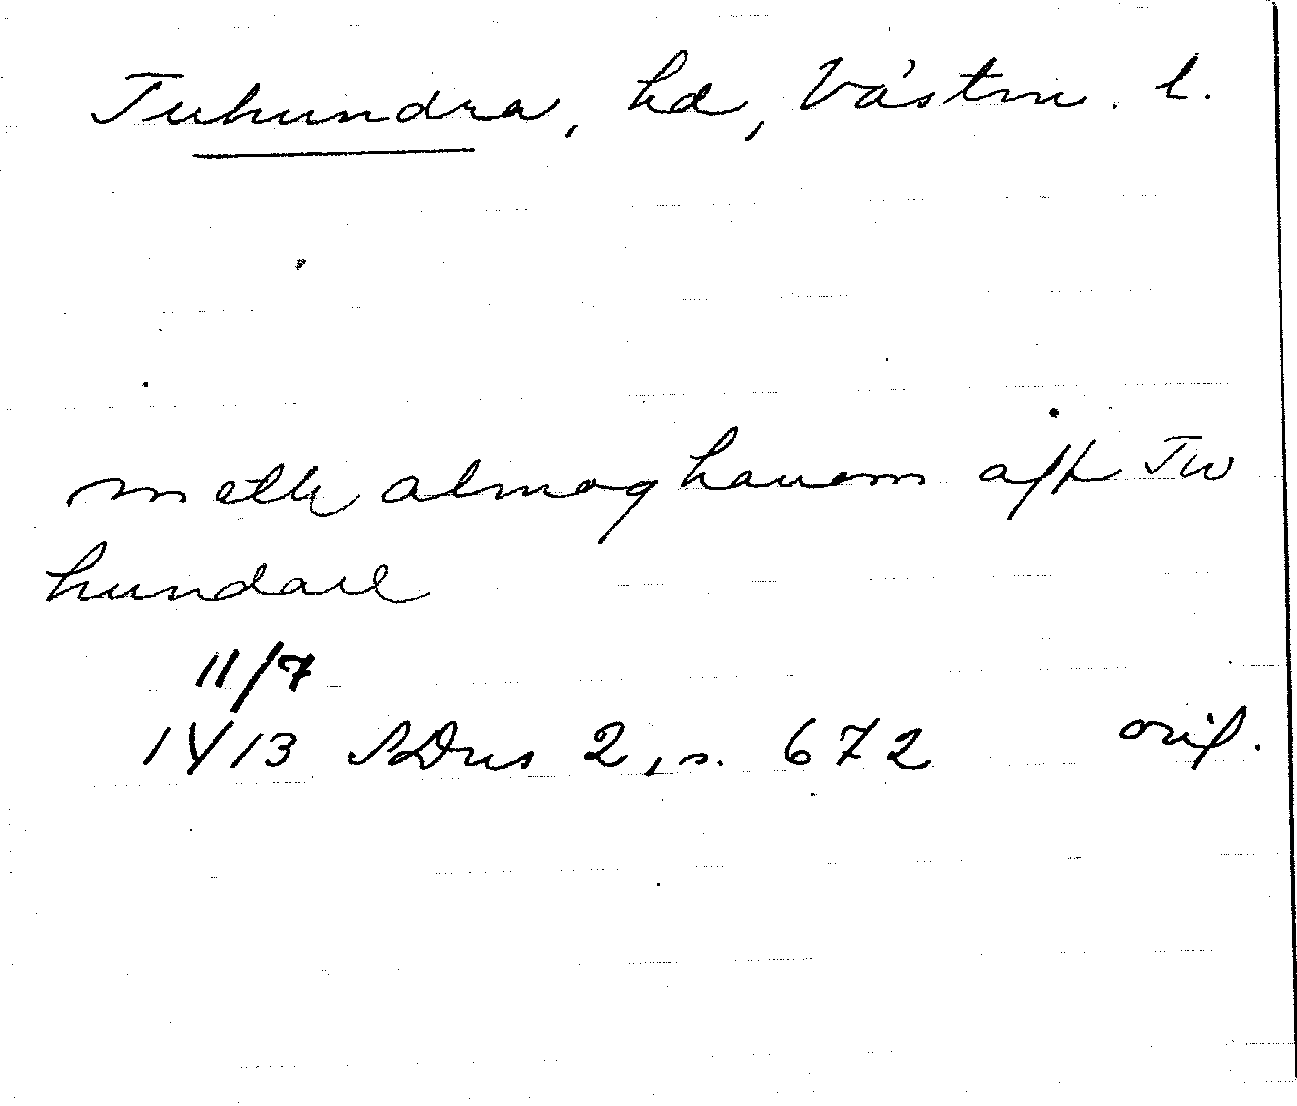 Tuhundra, hd, Västm. l.
meth almoghanom aff Tw
hundare
11/7
1413 SDns 2, s. 672 orig.